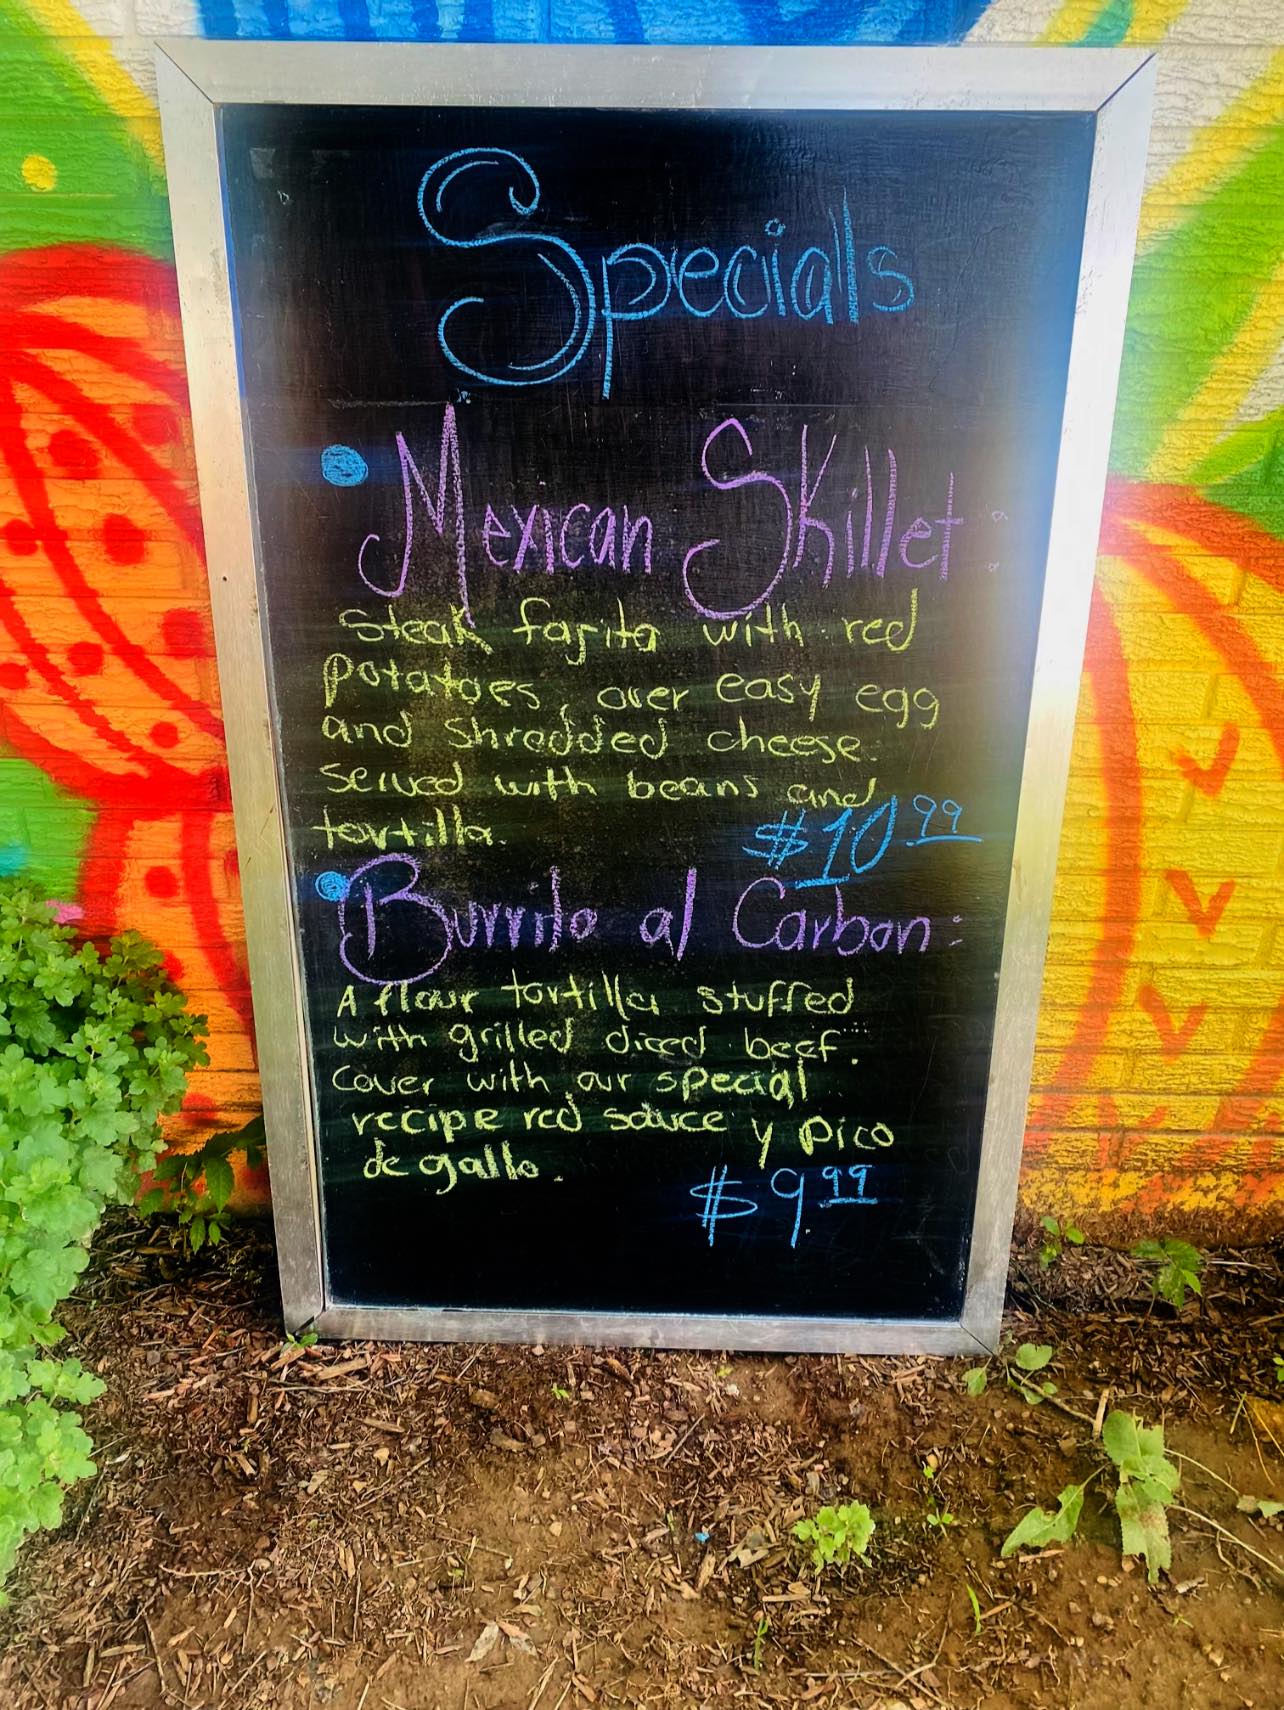 Specials
Mexican Skillet:
Steak fajita with red
potatoes, over easy egg
and shredded cheese.
served with beans and
tortilla.
$10.99
Burrito al Carbon:
A flour tortilla stuffed
with grilled diced beef.
Cover with our special
recipe red sauce y pico
de gallo.
$9.99